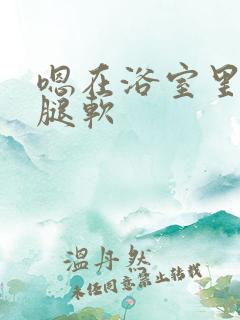 嗯在浴室里
腿軟
温丹然
未经同意禁止转载